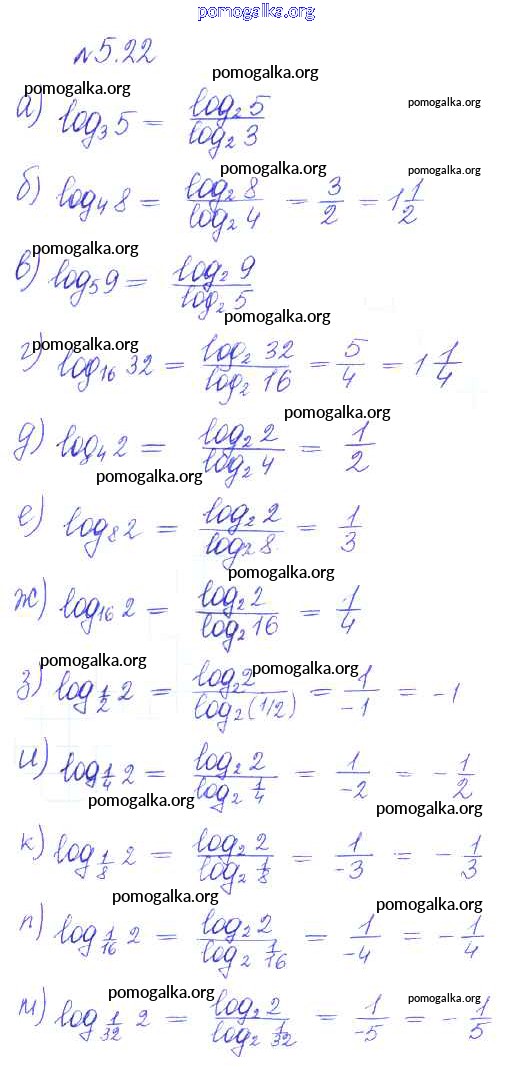 pomogalka.org
№5.22
pomogalka.org
pomogalka.org
а) log₃ 5 = log₂ 5 / log₂ 3
pomogalka.org
pomogalka.org
pomogalka.org
б) log₄ 8 = log₂ 8 / log₂ 4 = 3/2 = 1 1/2
pomogalka.org
в) log₅ 9 = log₂ 9 / log₂ 5
pomogalka.org
pomogalka.org
г) log₁₆ 32 = log₂ 32 / log₂ 16 = 5/4 = 1 1/4
pomogalka.org
д) log₄ 2 = log₂ 2 / log₂ 4 = 1/2
pomogalka.org
е) log₈ 2 = log₂ 2 / log₂ 8 = 1/3
pomogalka.org
ж) log₁₆ 2 = log₂ 2 / log₂ 16 = 1/4
pomogalka.org
pomogalka.org
з) log_(1/2) 2 = log₂ 2 / log₂ (1/2) = 1/-1 = -1
и) log_(1/4) 2 = log₂ 2 / log₂ 1/4 = 1/-2 = -1/2
pomogalka.org
pomogalka.org
к) log_(1/8) 2 = log₂ 2 / log₂ 1/8 = 1/-3 = -1/3
pomogalka.org
pomogalka.org
л) log_(1/16) 2 = log₂ 2 / log₂ 1/16 = 1/-4 = -1/4
pomogalka.org
pomogalka.org
м) log_(1/32) 2 = log₂ 2 / log₂ 1/32 = 1/-5 = -1/5